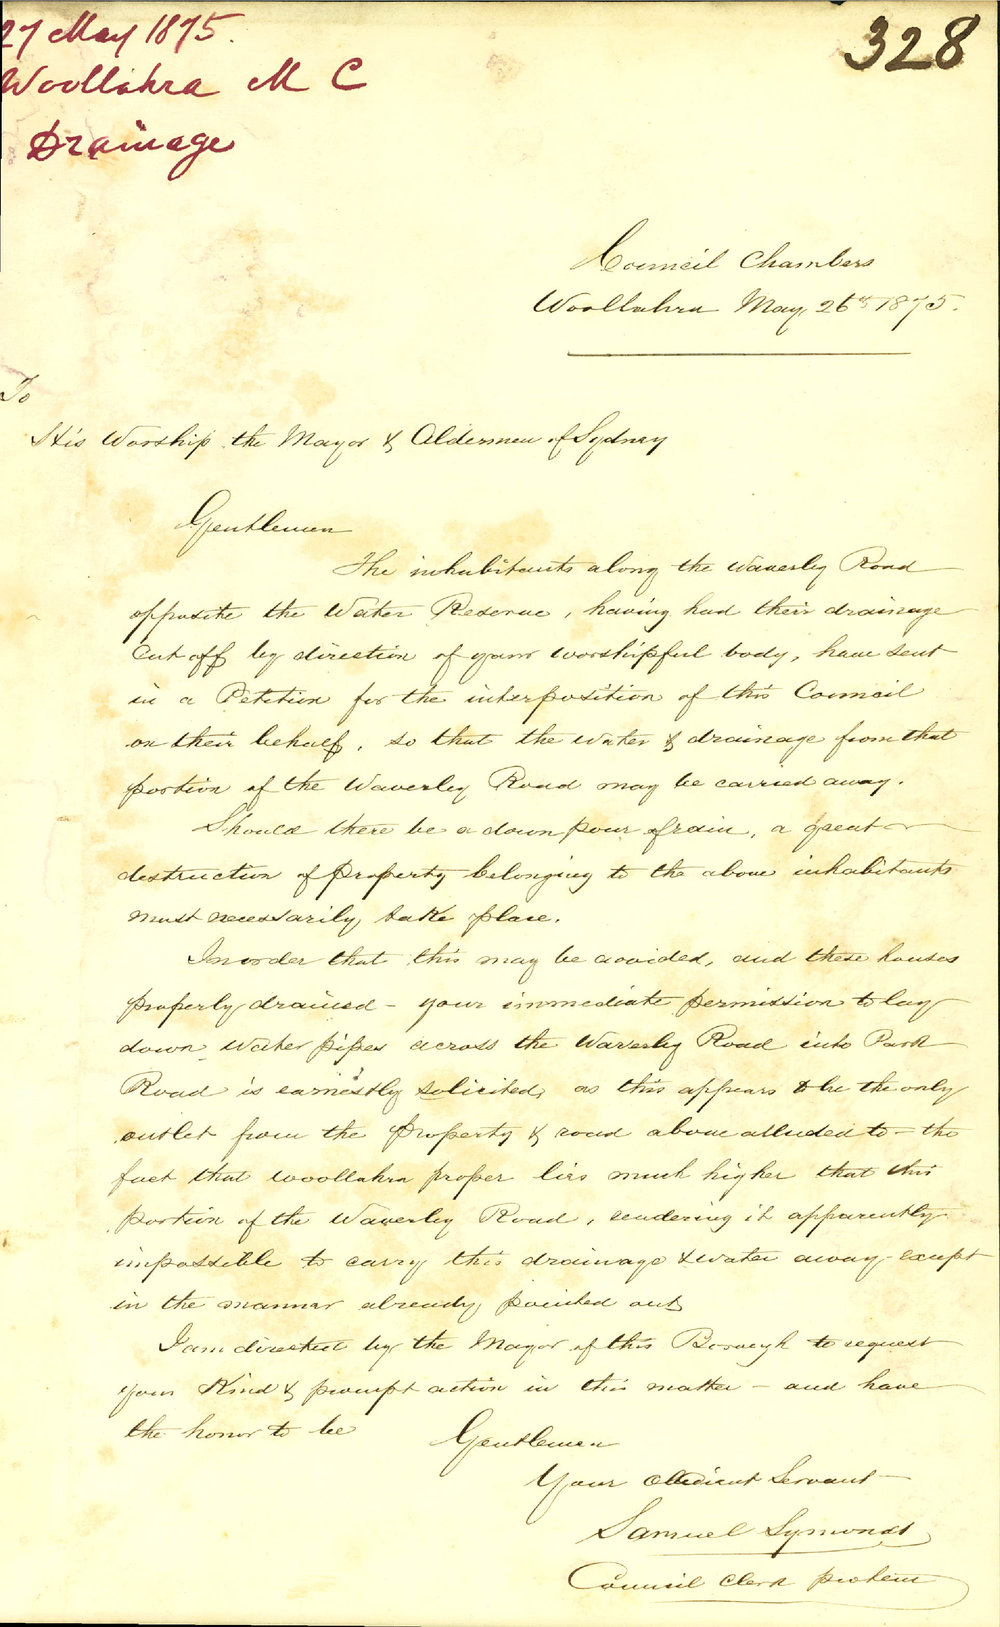 27 May 1875.
Woollahra M C
Drainage
328
Council Chambers
Woollahra May, 26th 1875.
To
His Worship the Mayor & Aldermen of Sydney
Gentlemen
The inhabitants along the Waverley Road
opposite the Water Reserve, having had their drainage
Cut off by direction of your worshipful body, have sent
in a Petition for the interposition of this Council
on their behalf, so that the water & drainage from that
portion of the Waverley Road may be carried away.
Should there be a down pour of rain, a great
destruction of Property belonging to the above inhabitants
must necessarily take place.
In order that this may be avoided, and these houses
properly drained - your immediate permission to lay
down water pipes across the Waverley Road into Park
Road is earnestly solicited, as this appears to be the only
outlet from the Property & road above alluded to - the
fact that Woollahra proper lies much higher that this
portion of the Waverley Road, rendering it apparently
impossible to carry this drainage & water away except
in the manner already pointed out
I am directed by the Mayor of this Borough to request
your Kind & prompt action in this matter - and have
the honor to be
Gentlemen
Your obedient Servant
Samuel Symonds
Council Clerk protem